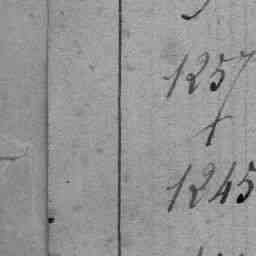 1257
1245